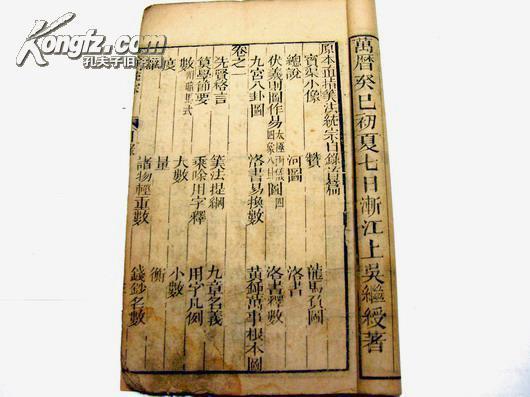 Kongfz.com
孔夫子旧书网
萬曆癸巳初夏七日漸江上吳繼綬著
原本直指算法統宗目錄首篇
賓渠小像 贊 龍馬負圖
總說 河圖 洛書
伏羲則圖作易 太極兩儀圖四象八卦圖 洛書釋數
九宮八卦圖 洛書易換數 黃鍾萬事根本圖
卷之一
先賢格言 算法提綱 九章名義
算學節要 乘除用字釋 用字凡例
數 大數 小數
度 量 衡
諸物輕重數 錢鈔名數